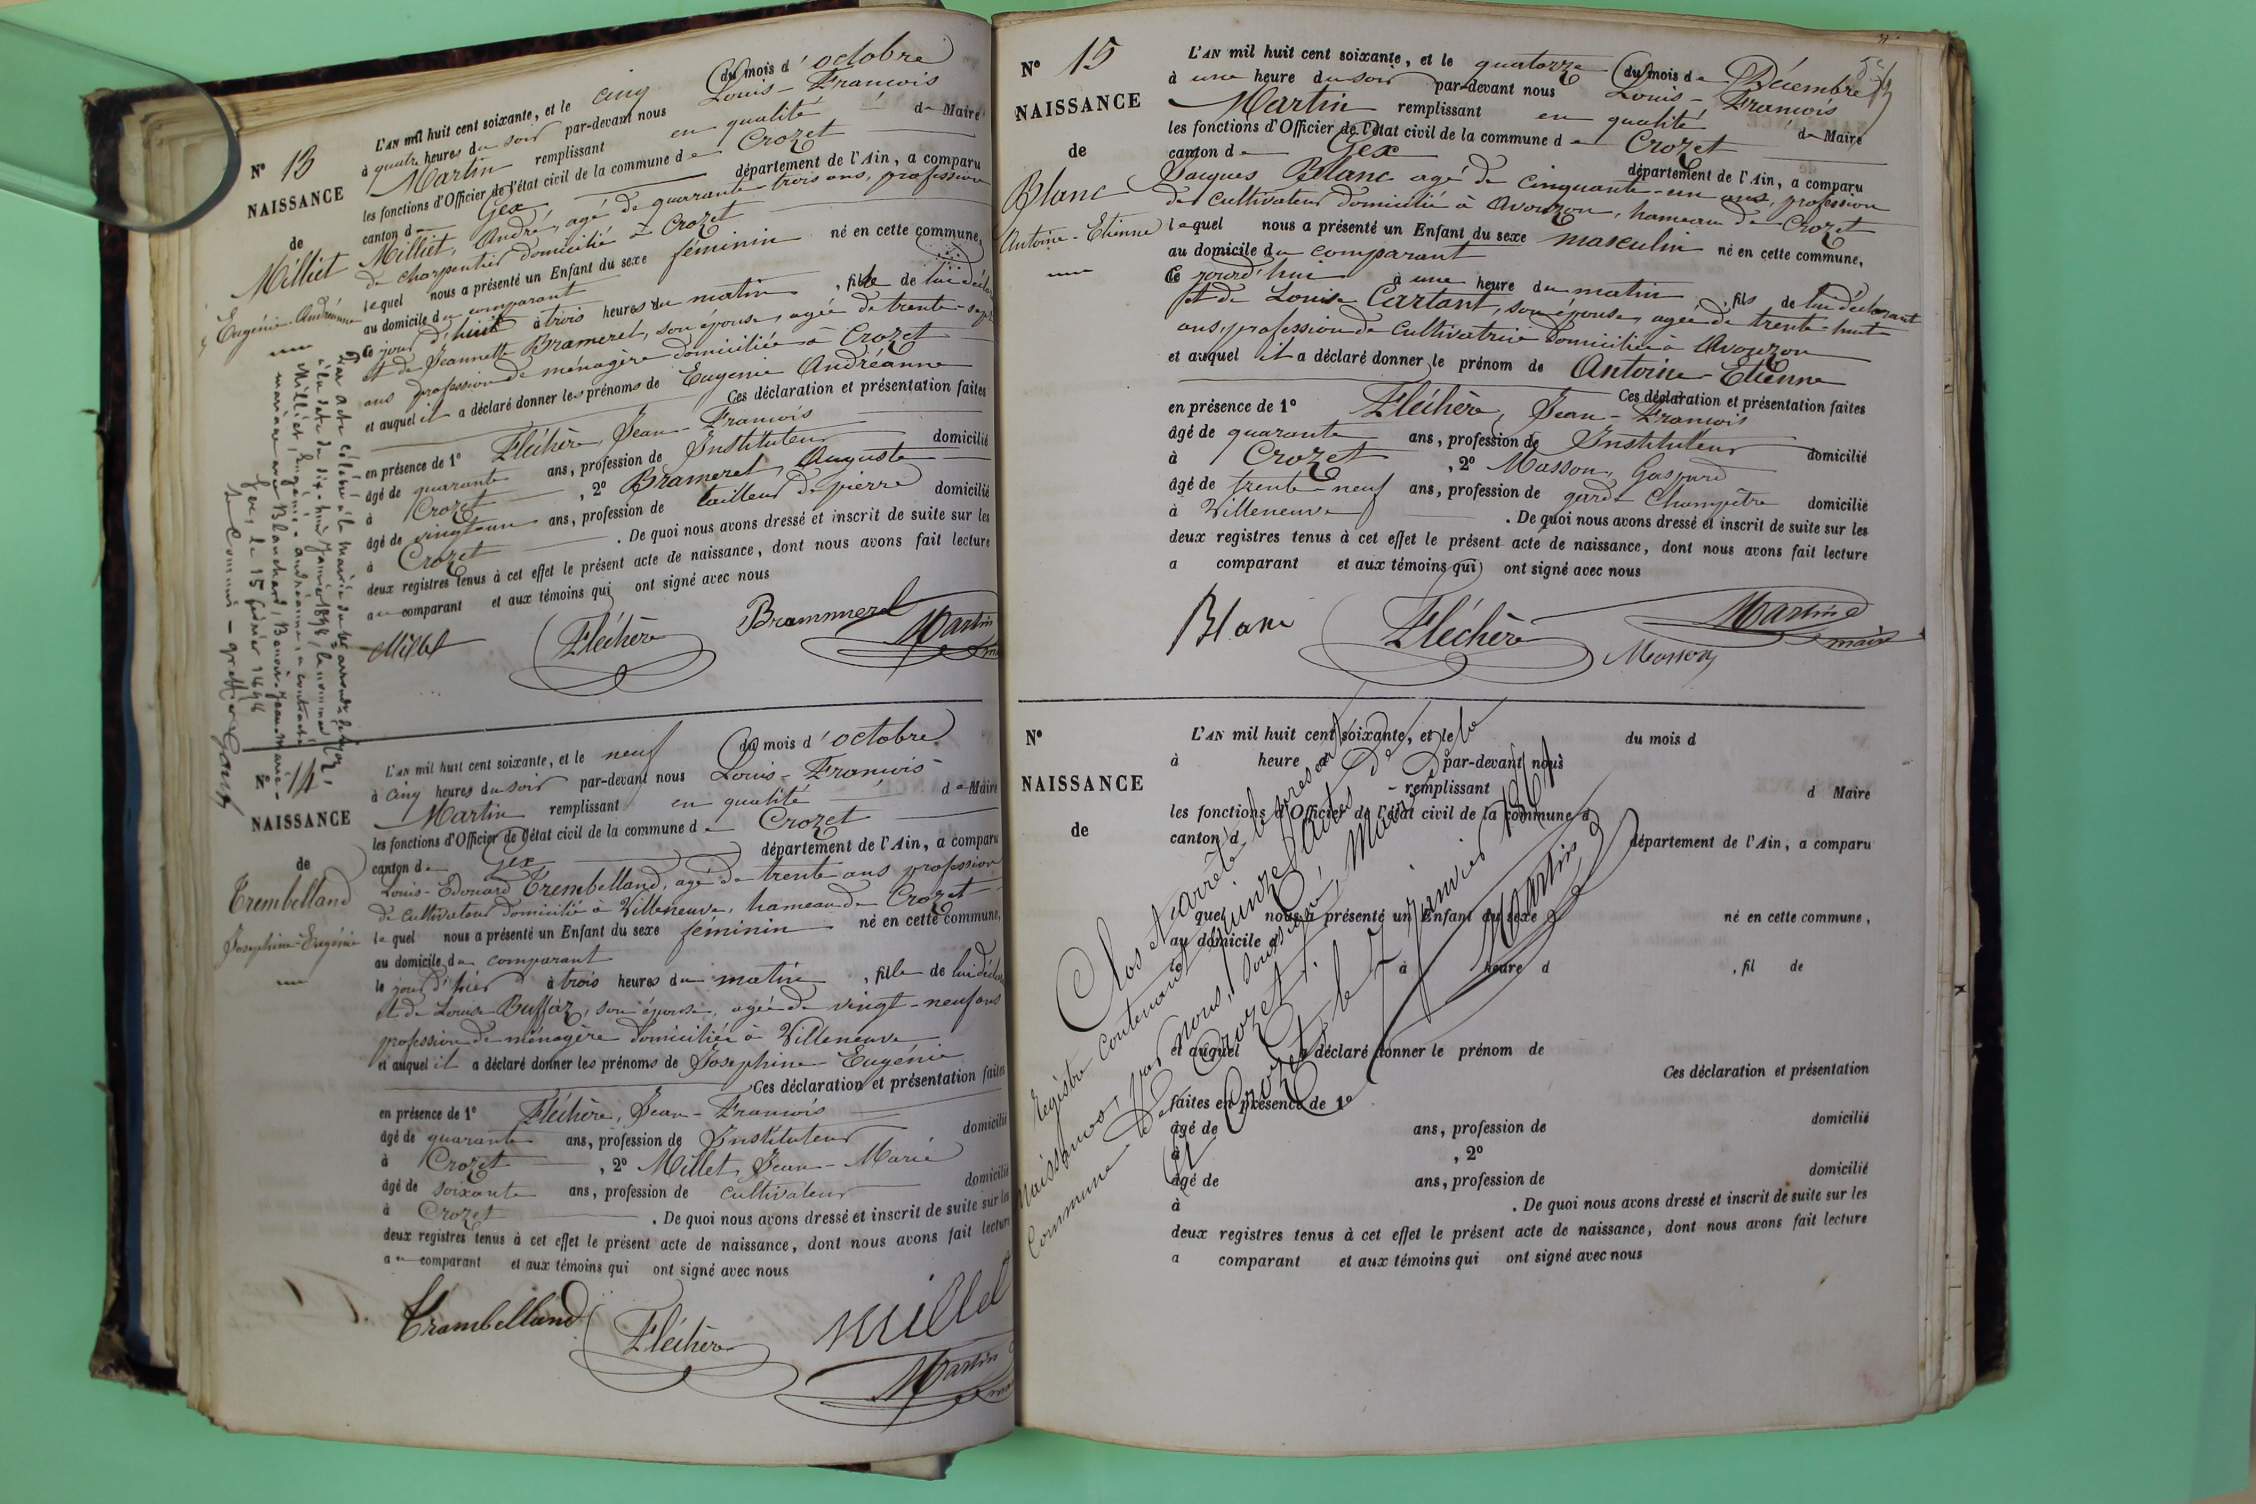 N° 13
NAISSANCE
de
Milliet
Eugénie-Andréanne
L'AN mil huit cent soixante, et le cinq du mois d'octobre
à quatre heures du soir par-devant nous Louis-François
Martin remplissant en qualité de Maire
les fonctions d'Officier de l'état civil de la commune de Crozet
canton de Gex département de l'Ain, a comparu
Milliet, André, agé de quarante-trois ans, profession
de charpentier domicilié à Crozet
lequel nous a présenté un Enfant du sexe féminin né en cette commune,
au domicile du comparant
Ce jourd'hui à trois heures du matin, fille de lui déclarant
et de Jeannette Brameret, son épouse, agée de trente-sept
ans profession de ménagère domiciliée à Crozet
et auquel il a déclaré donner les prénoms de Eugénie Andréanne
Ces déclaration et présentation faites
en présence de 1° Fléchère, Jean-François
âgé de quarante ans, profession de Instituteur domicilié
à Crozet, 2° Brameret, Auguste
âgé de vingt un ans, profession de tailleur de pierre domicilié
à Crozet. De quoi nous avons dressé et inscrit de suite sur les
deux registres tenus à cet effet le présent acte de naissance, dont nous avons fait lecture
au comparant et aux témoins qui ont signé avec nous
Milliet Fléchère Brammerel Martin
Par acte célébré à la mairie du arrondt de Lyon,
à la date du dix-huit Janvier 1898, la nommée
Milliet, Eugénie andréanne, a contracté
mariage avec Blanchard, Benoît Jean-Marie-
Gex, le 15 février 1898
Le Commis-greffier
14
NAISSANCE
de
Trembelland
Josephine-Eugénie
L'AN mil huit cent soixante, et le neuf du mois d'octobre
à cinq heures du soir par-devant nous Louis-François
Martin remplissant en qualité de Maire
les fonctions d'Officier de l'état civil de la commune de Crozet
canton de Gex département de l'Ain, a comparu
Louis-Edouard Trembelland, agé de trente ans profession
de cultivateur domicilié à Villeneuve, hameau de Crozet
lequel nous a présenté un Enfant du sexe féminin né en cette commune,
au domicile du comparant
le jour d'hier à trois heures du matin, fille de lui déclarant
et de Louise Buffaz, son épouse, agée de vingt-neuf ans
profession de ménagère domiciliée à Villeneuve
et auquel il a déclaré donner les prénoms de Josephine Eugénie
Ces déclaration et présentation faites
en présence de 1° Fléchère, Jean-François
âgé de quarante ans, profession de Instituteur domicilié
à Crozet, 2° Millet, Jean-Marie
âgé de soixante ans, profession de cultivateur domicilié
à Crozet. De quoi nous avons dressé et inscrit de suite sur les
deux registres tenus à cet effet le présent acte de naissance, dont nous avons fait lecture
au comparant et aux témoins qui ont signé avec nous
Trambelland Fléchère Millet
Martin
N° 15
NAISSANCE
de
Blanc
Antoine-Etienne
L'AN mil huit cent soixante, et le quatorze du mois de Décembre
à une heure du soir par-devant nous Louis-François
Martin remplissant en qualité de Maire
les fonctions d'Officier de l'état civil de la commune de Crozet
canton de Gex département de l'Ain, a comparu
Jacques Blanc agé de cinquante-un ans, profession
de cultivateur domicilié à Avouzon, hameau de Crozet
lequel nous a présenté un Enfant du sexe masculin né en cette commune,
au domicile du comparant
Ce jourd'hui à une heure du matin, fils de lui déclarant
et de Louise Cartant, son épouse, agée de trente-huit
ans, profession de cultivatrice domiciliée à Avouzon
et auquel il a déclaré donner le prénom de Antoine-Etienne
Ces déclaration et présentation faites
en présence de 1° Fléchère, Jean-François
âgé de quarante ans, profession de Instituteur domicilié
à Crozet, 2° Masson, Gaspard
âgé de trente-neuf ans, profession de garde champêtre domicilié
à Villeneuve. De quoi nous avons dressé et inscrit de suite sur les
deux registres tenus à cet effet le présent acte de naissance, dont nous avons fait lecture
a comparant et aux témoins qui ont signé avec nous
Blanc Fléchère Martin
Masson maire
N°
NAISSANCE
de
L'AN mil huit cent soixante, et le du mois d
à heure d par-devant nous
remplissant d Maire
les fonctions d'Officier de l'état civil de la commune d
canton d département de l'Ain, a comparu
quel nous a présenté un Enfant du sexe né en cette commune,
au domicile d
à heure d, fil de
et auquel a déclaré donner le prénom de
Ces déclaration et présentation
faites en présence de 1°
âgé de ans, profession de domicilié
à, 2°
âgé de ans, profession de domicilié
à. De quoi nous avons dressé et inscrit de suite sur les
deux registres tenus à cet effet le présent acte de naissance, dont nous avons fait lecture
a comparant et aux témoins qui ont signé avec nous
Clos et arrêté le présent
registre contenant quinze actes de
Naissances, par nous, soussigné, Maire de la
Commune de Crozet.
à Crozet, le 7 Janvier 1861
Martin